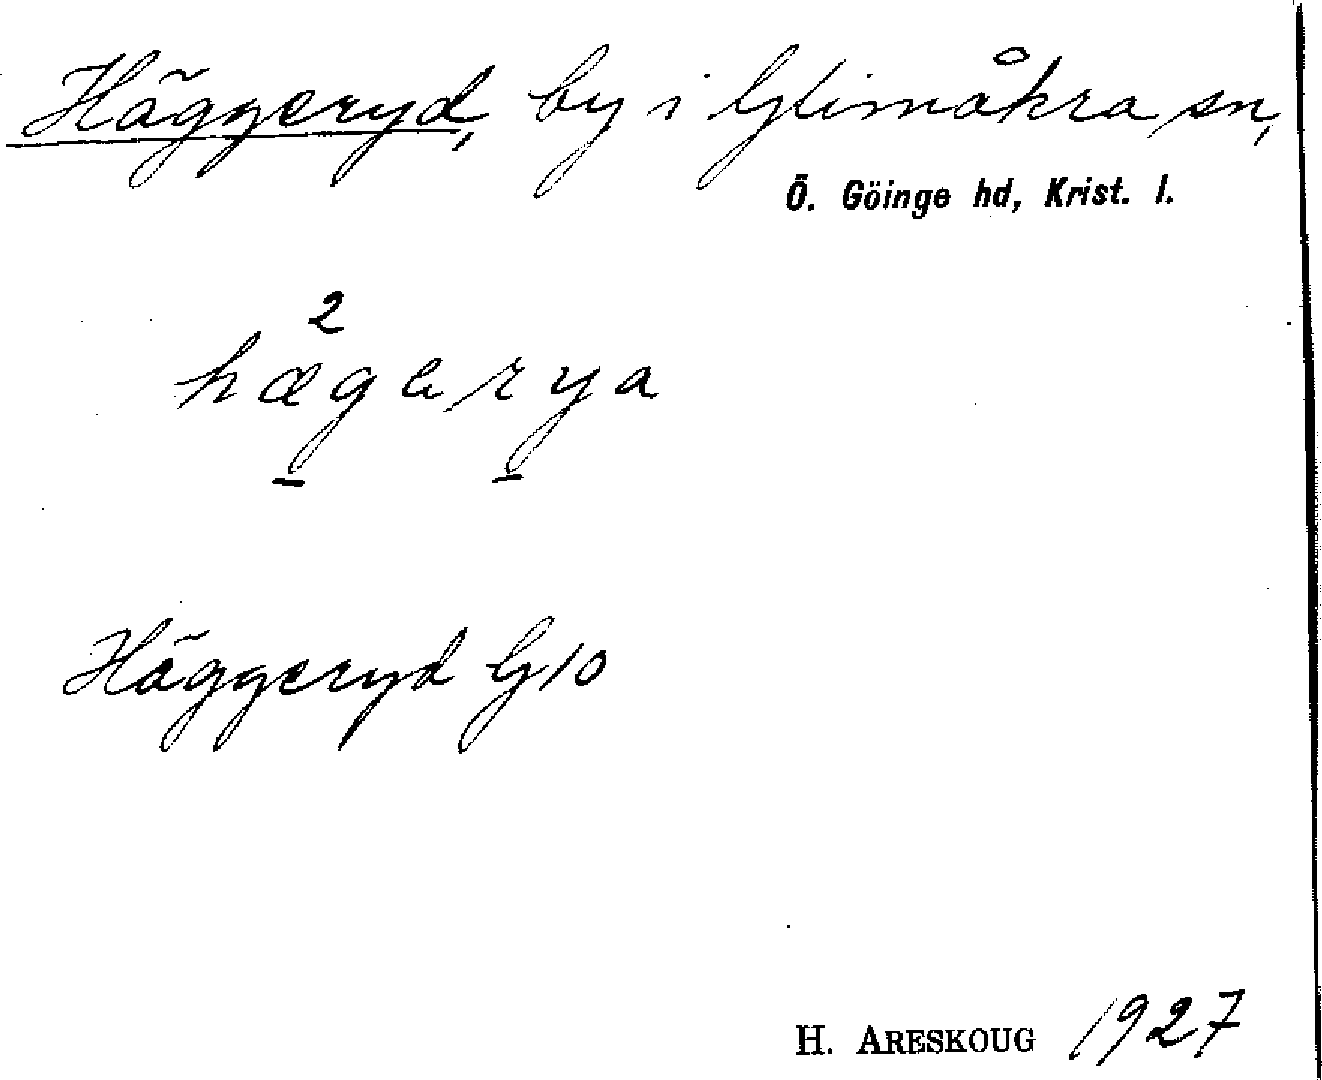 Häggeryd, by i Glimåkra sn,
Ö. Göinge hd, Krist. l.
2
hægerya
Häggeryd G10
H. ARESKOUG 1927